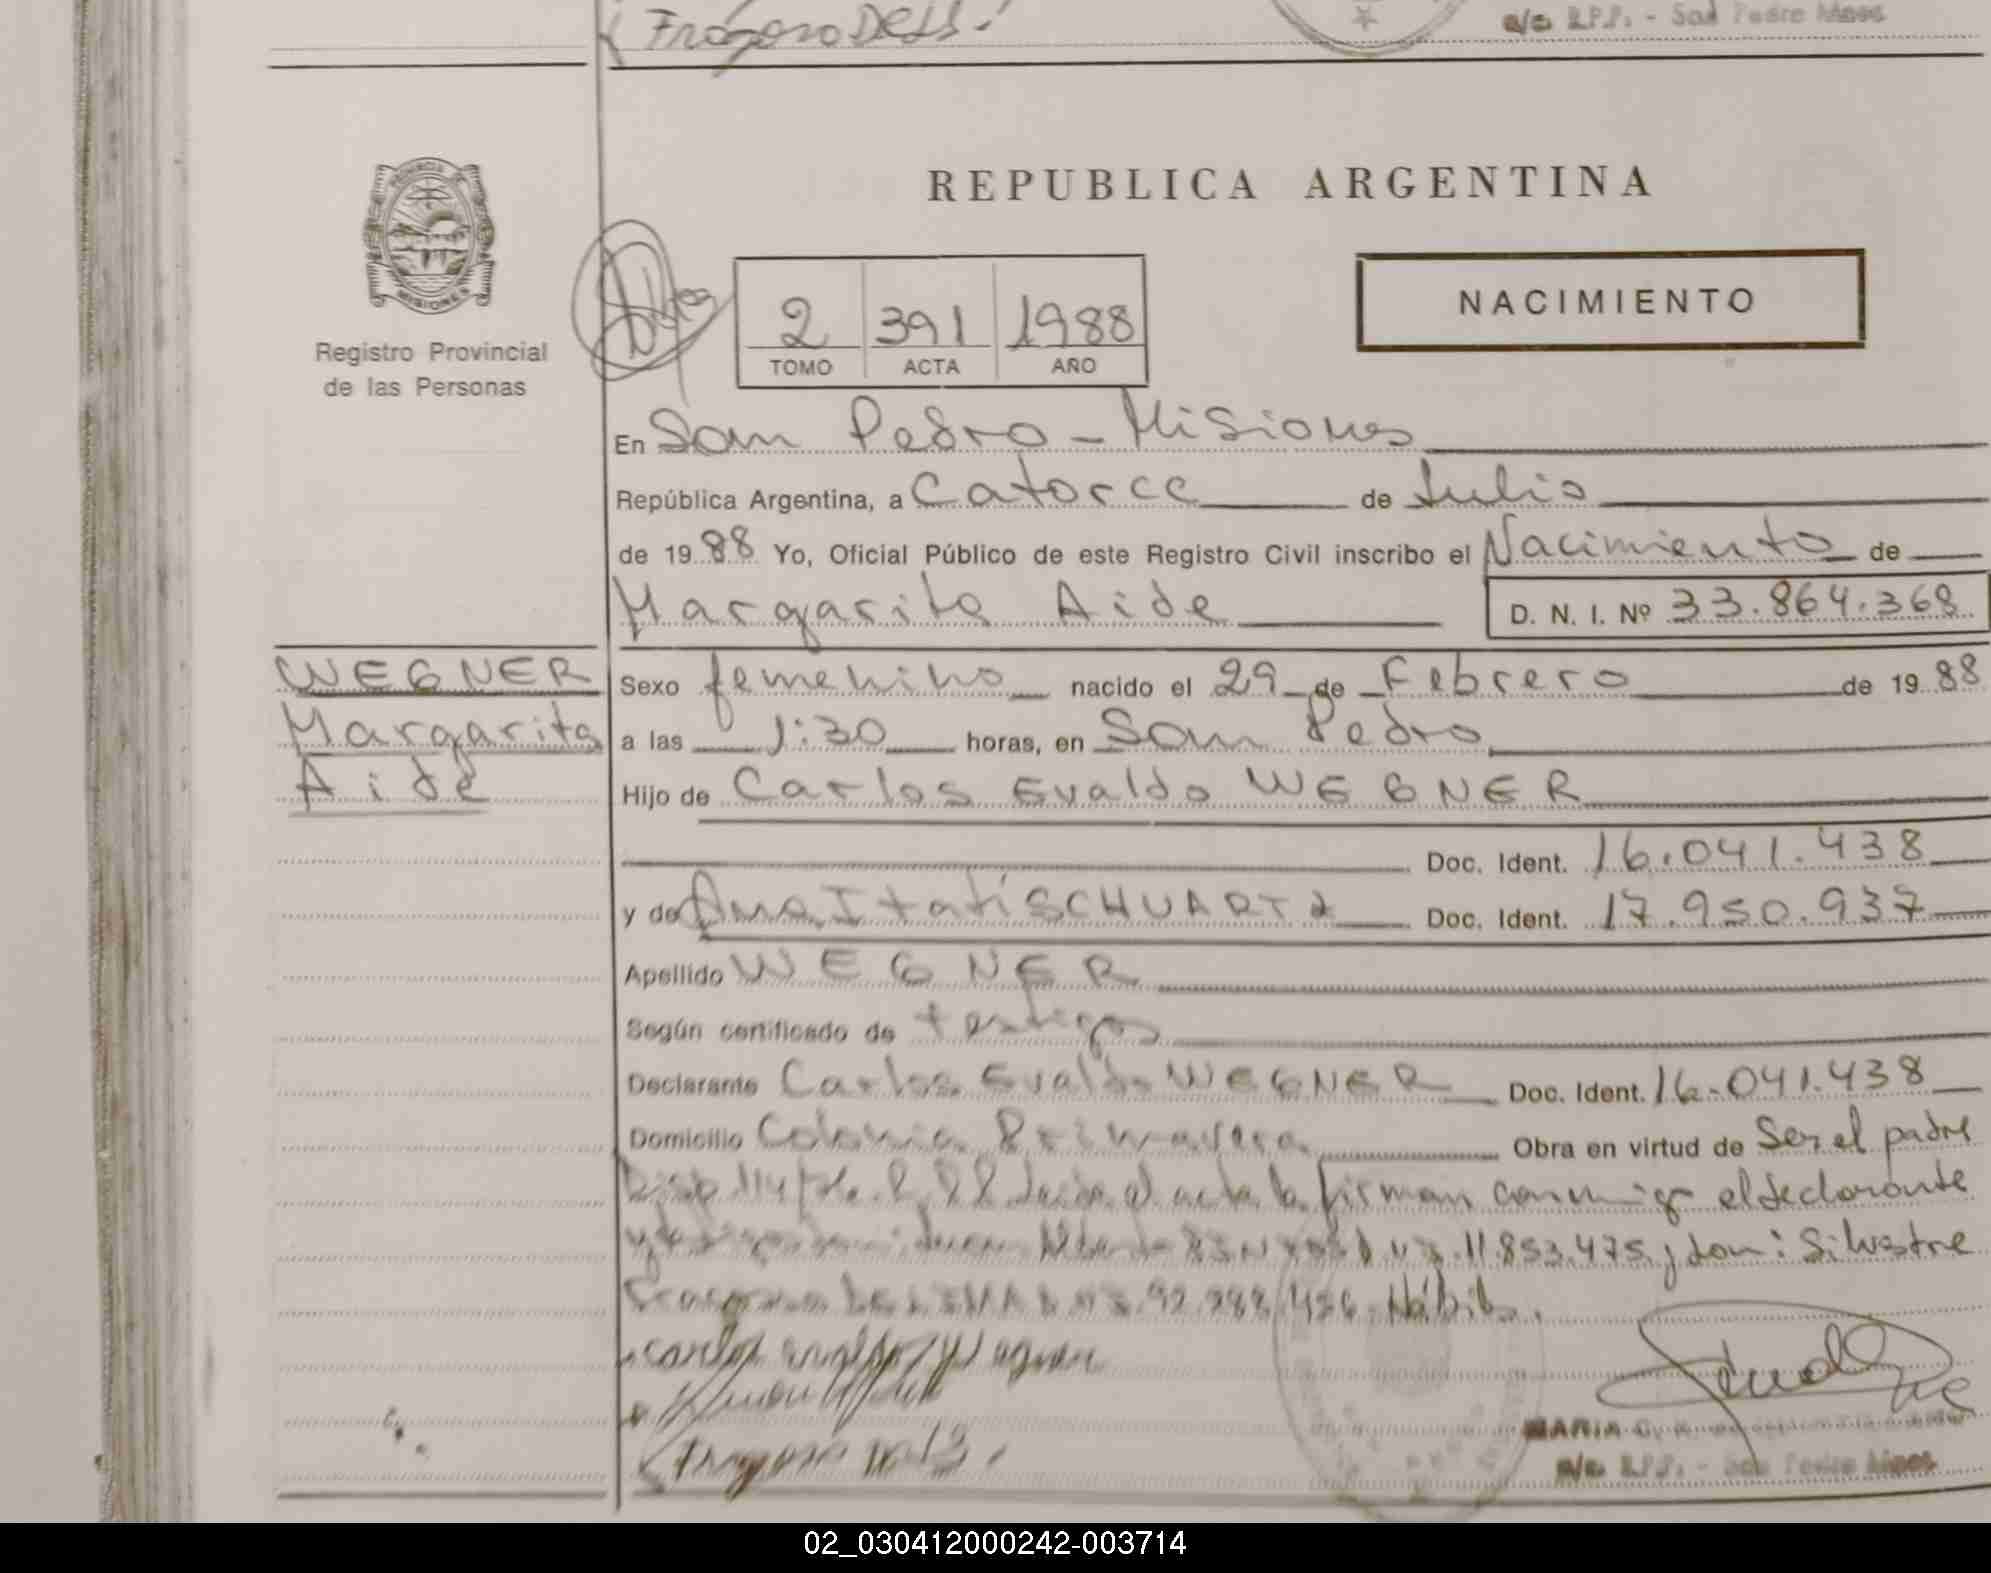 Fragoso Dells.
a/c. R.P.P. - San Pedro Mnes
PROVINCIA DE
MISIONES
Registro Provincial
de las Personas
REPUBLICA ARGENTINA
2 391 1988
TOMO ACTA AÑO
NACIMIENTO
En San Pedro - Misiones
República Argentina, a Catorce de Julio
de 19 88 Yo, Oficial Público de este Registro Civil inscribo el Nacimiento de
Margarita Aide
D. N. I. Nº 33.864.368
WEGNER
Margarita
Aide
Sexo femenino nacido el 29 de Febrero de 19 88
a las 1:30 horas, en San Pedro
Hijo de Carlos Evaldo WEGNER
Doc. Ident. 16.041.438
y de Ana Itatí SCHUARTZ Doc. Ident. 17.950.937
Apellido WEGNER
Según certificado de testigos
Declarante Carlos Evaldo WEGNER Doc. Ident. 16.041.438
Domicilio Colonia Primavera Obra en virtud de Ser el padre
Disp. 114/ R.P.P. Leída el acta la firman conmigo el declarante
y testigos don: Juan Alberto 11.853.475 y don: Silvestre
Fragoso 92.288.456. Hábiles.
Carlos Wegner
Fragoso
MARIA C.
a/c. R.P.P. - San Pedro Mnes
02_030412000242-003714